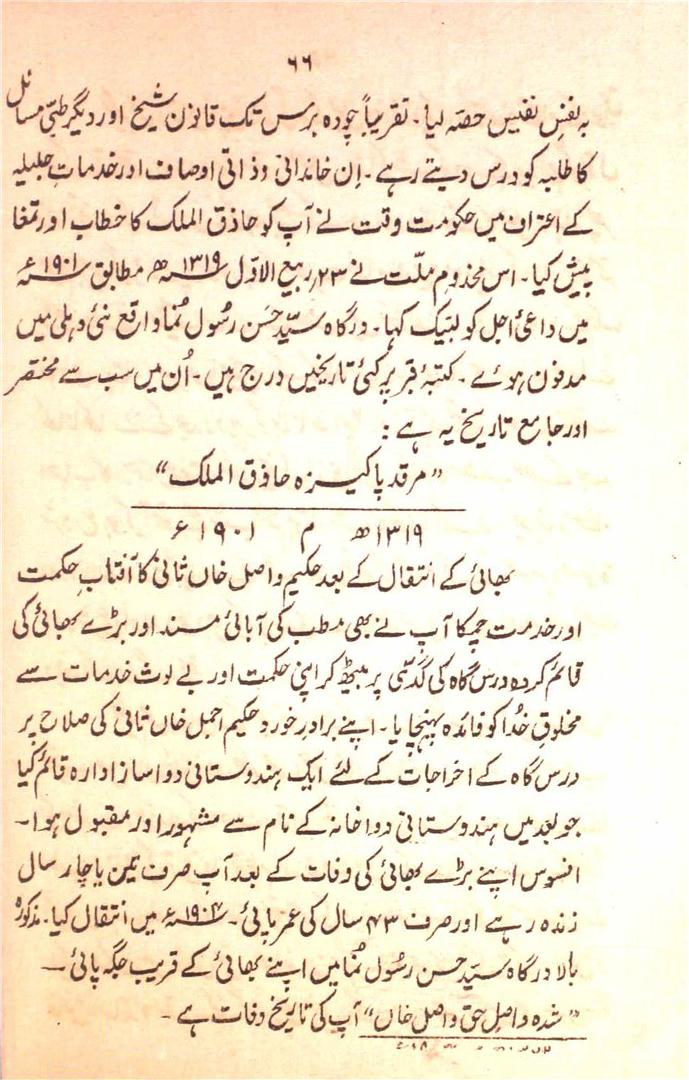 ۶۶
بہ نفسِ نفیس حصّہ لیا۔ تقریباً چودہ برس تک قانون شیخ اور دیگر طبّی مسائل
کا طلبہ کو درس دیتے رہے۔ اِن خاندانی و ذاتی اوصاف اور خدماتِ جلیلہ
کے اعتراف میں حکومت وقت نے آپ کو حاذق الملک کا خطاب اور تمغا
پیش کیا۔ اس مخدومِ ملّت نے ۲۳؍ ربیع الاوّل ۱۳۱۹ھ مطابق ۱۹۰۱ء
میں داعیٔ اجل کو لبّیک کہا۔ درگاہ سیّد حَسَن رسُول نُمَا واقع نئی دہلی میں
مدفون ہوئے۔ کتبۂ قبر پر کئی تاریخیں درج ہیں۔ اُن میں سب سے مختصر
اور جامع تاریخ یہ ہے :
”مرقد پاکیزہ حاذق الملک“
۱۳۱۹ھ م ۱۹۰۱ء
بھائی کے انتقال کے بعد حکیم واصل خاں ثانی کا آفتابِ حکمت
اور خدمت چمکا آپ نے بھی مطب کی آبائی مسند اور بڑے بھائی کی
قائم کردہ درس گاہ کی گدّی پر بیٹھ کر اپنی حکمت اور بے لوث خدمات سے
مخلوقِ خُدا کو فائدہ پہنچایا۔ اپنے برادرِ خورد حکیم اجمل خاں ثانی کی صلاح پر
درس گاہ کے اخراجات کے لئے ایک ہندوستانی دوا ساز ادارہ قائم کیا
جو بعد میں ہندوستانی دواخانہ کے نام سے مشہور اور مقبول ہوا۔
افسوس اپنے بڑے بھائی کی وفات کے بعد آپ صرف تین یا چار سال
زندہ رہے اور صرف ۴۳ سال کی عمر پائی۔ ۱۹۰۴ء میں انتقال کیا۔ مذکورہ
بالا درگاہ سیّد حسن رسُول نُمَا میں اپنے بھائی کے قریب جگہ پائی۔
”شدہ واصلِ حق واصل خاں“ آپ کی تاریخ وفات ہے۔